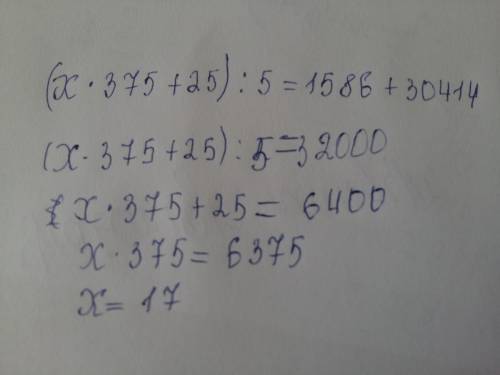 (x · 375 + 25) : 5 = 1586 + 30414
(x · 375 + 25) : 5 = 32000
x · 375 + 25 = 6400
x · 375 = 6375
x = 17